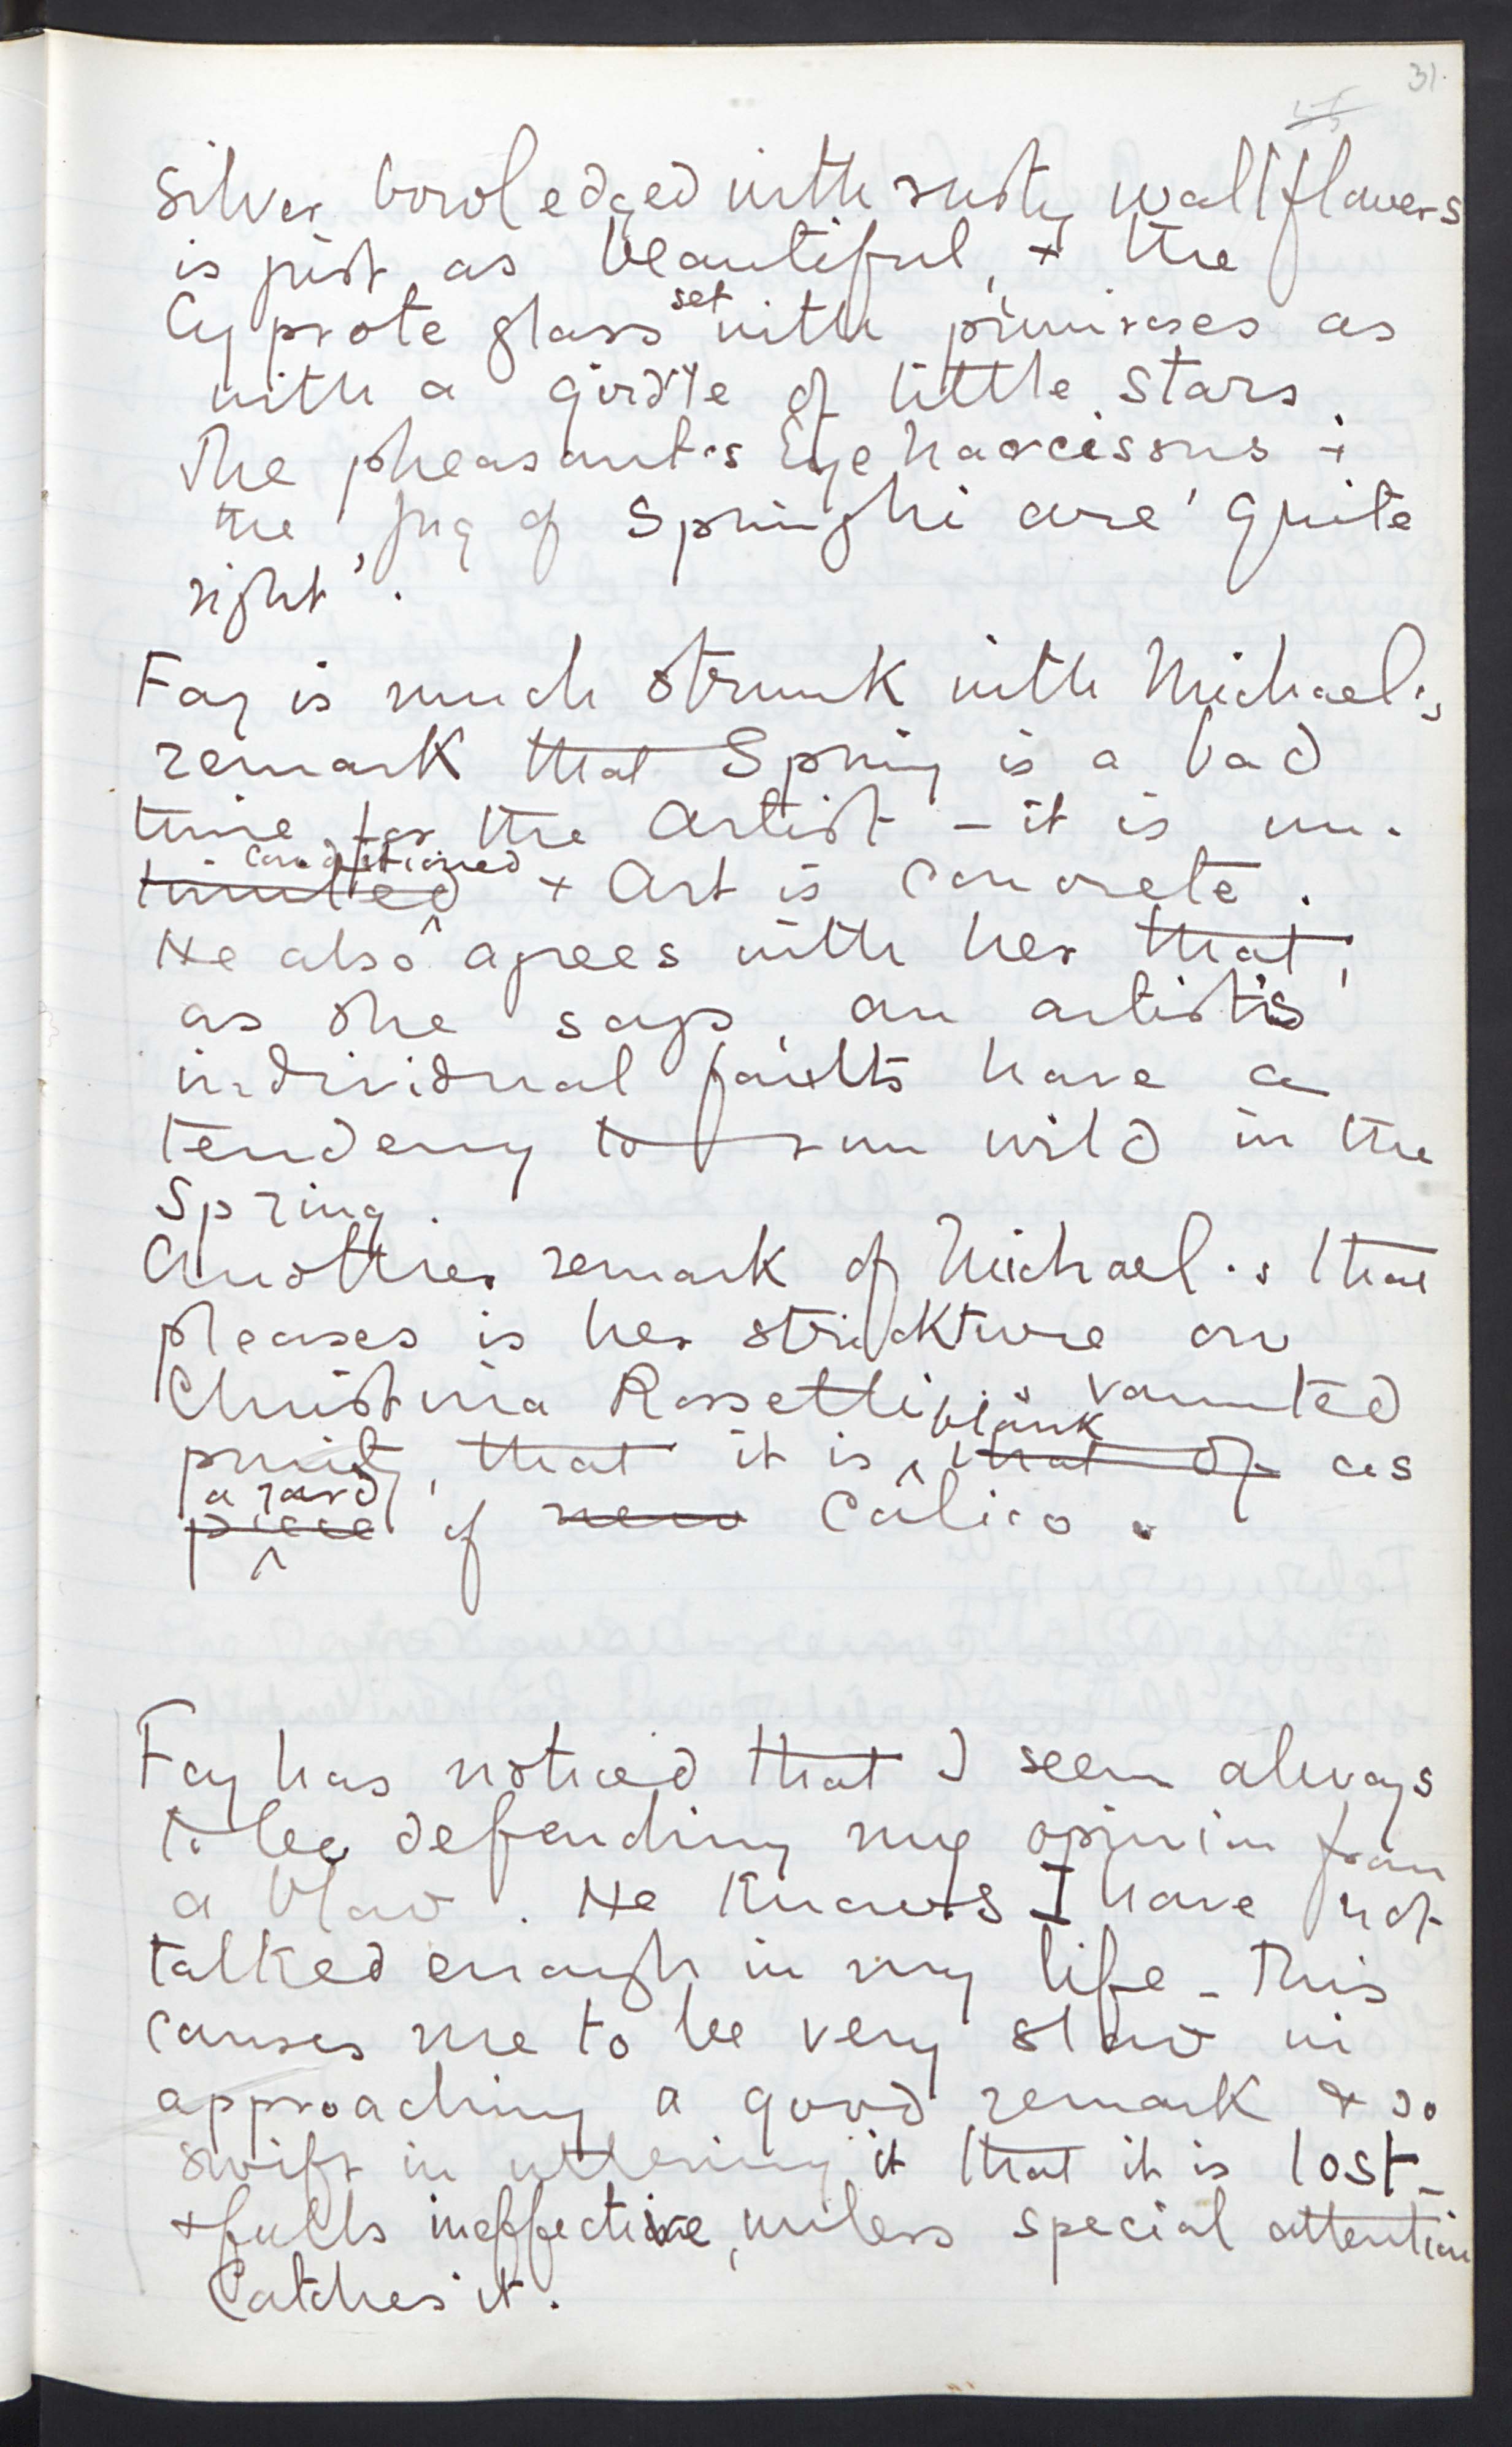 31.
silver bowl edged with rusty wallflowers
is just as beautiful, + the
Cyprote glass set with primroses as
with a girdle of little stars.
The pheasant's Eye Narcissus +
the jug of are 'quite
right'.
Fay is much strunk with Michael's
remark that Spring is a bad
time for the Artist – it is un-
limited conditioned + Art is concrete.
He also agrees with her that,
as she says, an artist's
individual faults have a
tendency to run wild in the
Spring.
Another remark of Michael's that
pleases is her strickture on
Christina Rossetti's vaunted
purity, that it is blank that of as
piece a yard of new Calico.
Fay has noticed that I seem always
to be defending my opinion from
a blow. He knows I have not
talked enough in my life – This
causes me to be very slow in
approaching a good remark & so
swift in uttering it that it is lost –
+ falls ineffective, unless special attention
Catches it.